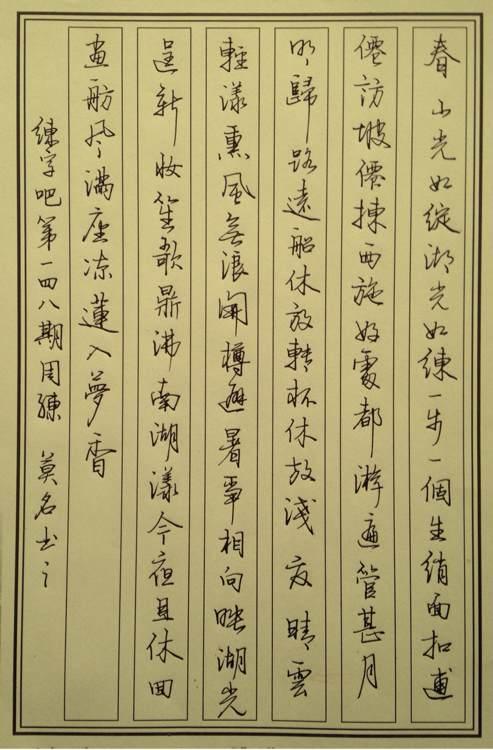 春 山光如綻湖光如練一步一個生綃面扣逋
僊訪坡僊揀西施好處都游遍管甚月
明歸路遠船休放轉杯休放淺 夏 晴雲
輕漾熏風無浪開樽避暑爭相向映湖光
逞新妝笙歌鼎沸南湖漾今夜且休回
畫舫風滿座凉蓮入夢香
練字吧第一四八期周練 莫名书之